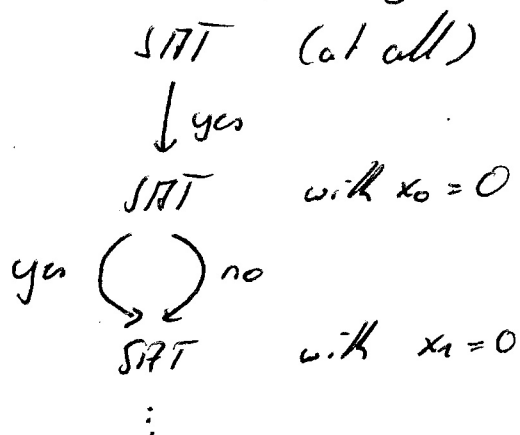 SAT (at all)
yes
SAT with x₀ = 0
yes no
SAT with x₁ = 0
⋮